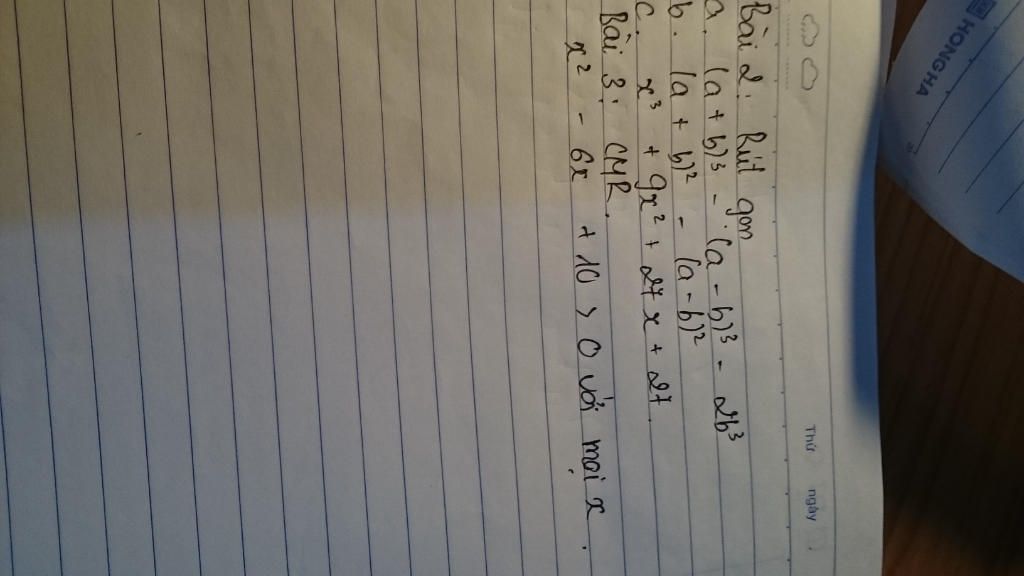 HONG HA
Thứ ngày
Bài 2: Rút gọn
a. (a + b)³ - (a - b)³ - 2b³
b. (a + b)² - (a - b)²
c. x³ + 9x² + 27x + 27.
Bài 3: CMR.
x² - 6x + 10 > 0 với mọi x.